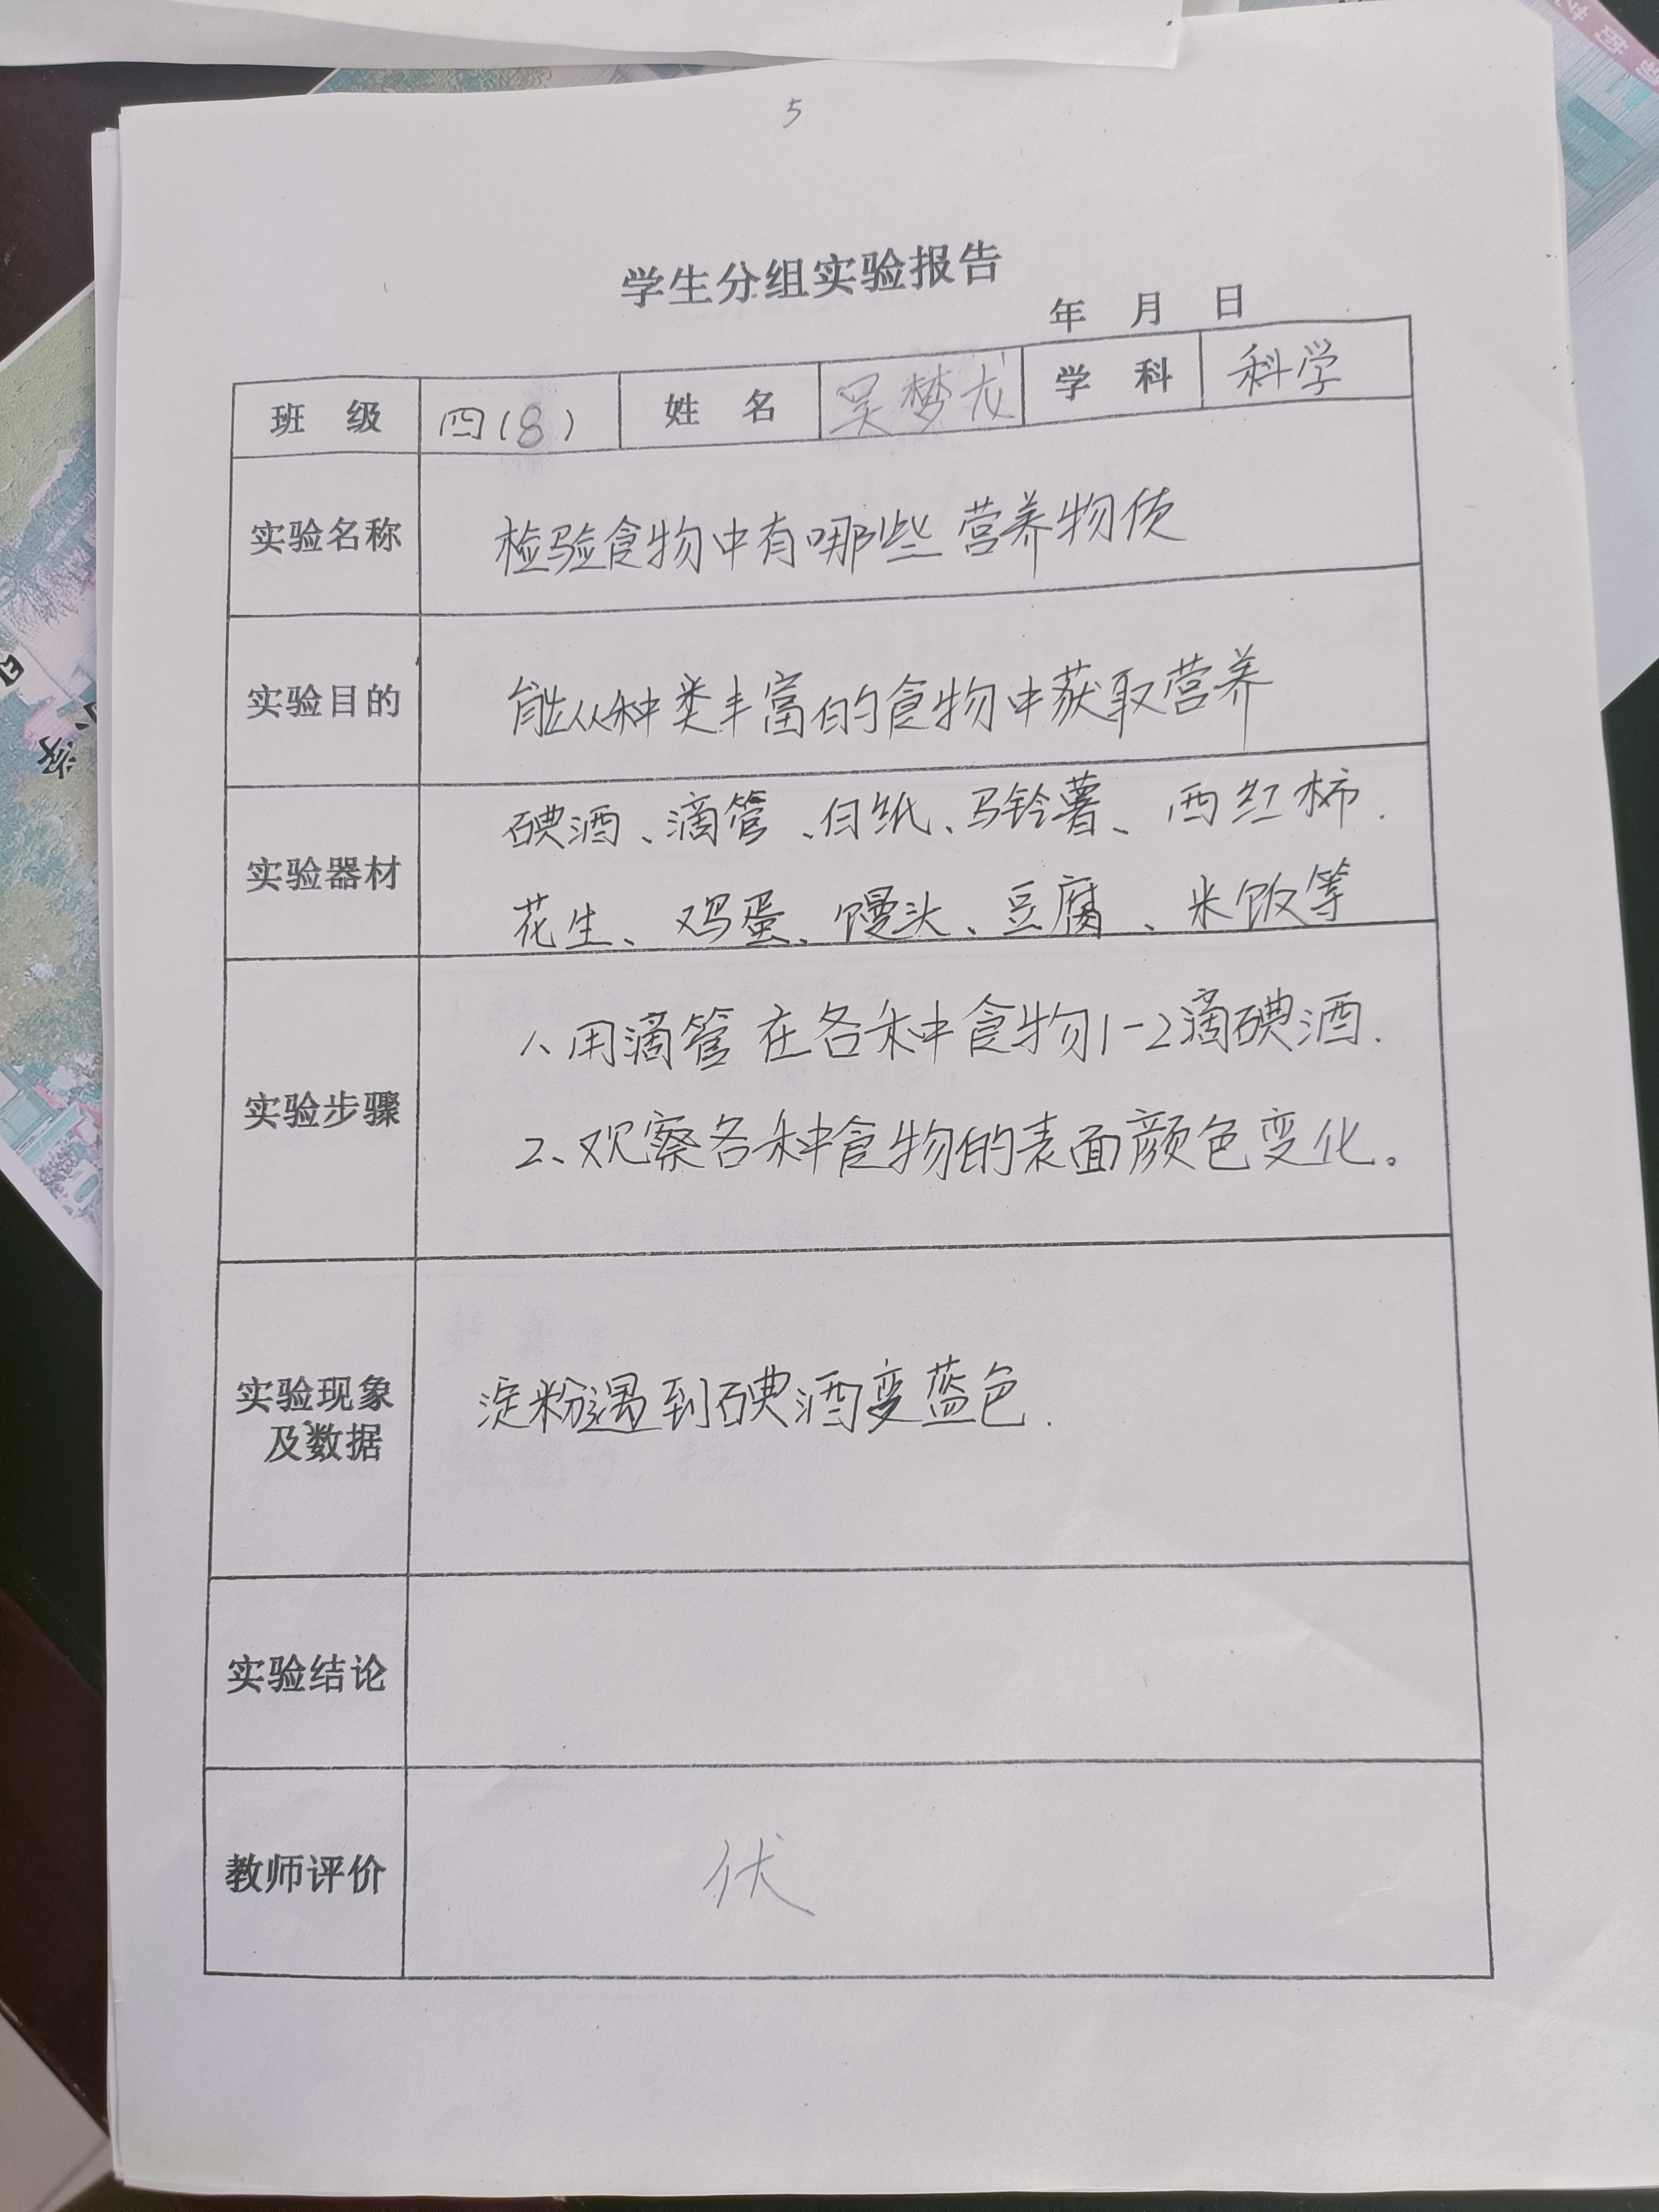 5
学生分组实验报告
年 月 日
班 级 四(8) 姓 名 吴梦龙 学 科 科学
实验名称 检验食物中有哪些营养物质
实验目的 能从种类丰富的食物中获取营养
实验器材 碘酒、滴管、白纸、马铃薯、西红柿.
花生、鸡蛋、馒头、豆腐、米饭等
实验步骤 1、用滴管在各种食物1-2滴碘酒.
2、观察各种食物的表面颜色变化。
实验现象
及数据 淀粉遇到碘酒变蓝色.
实验结论
教师评价